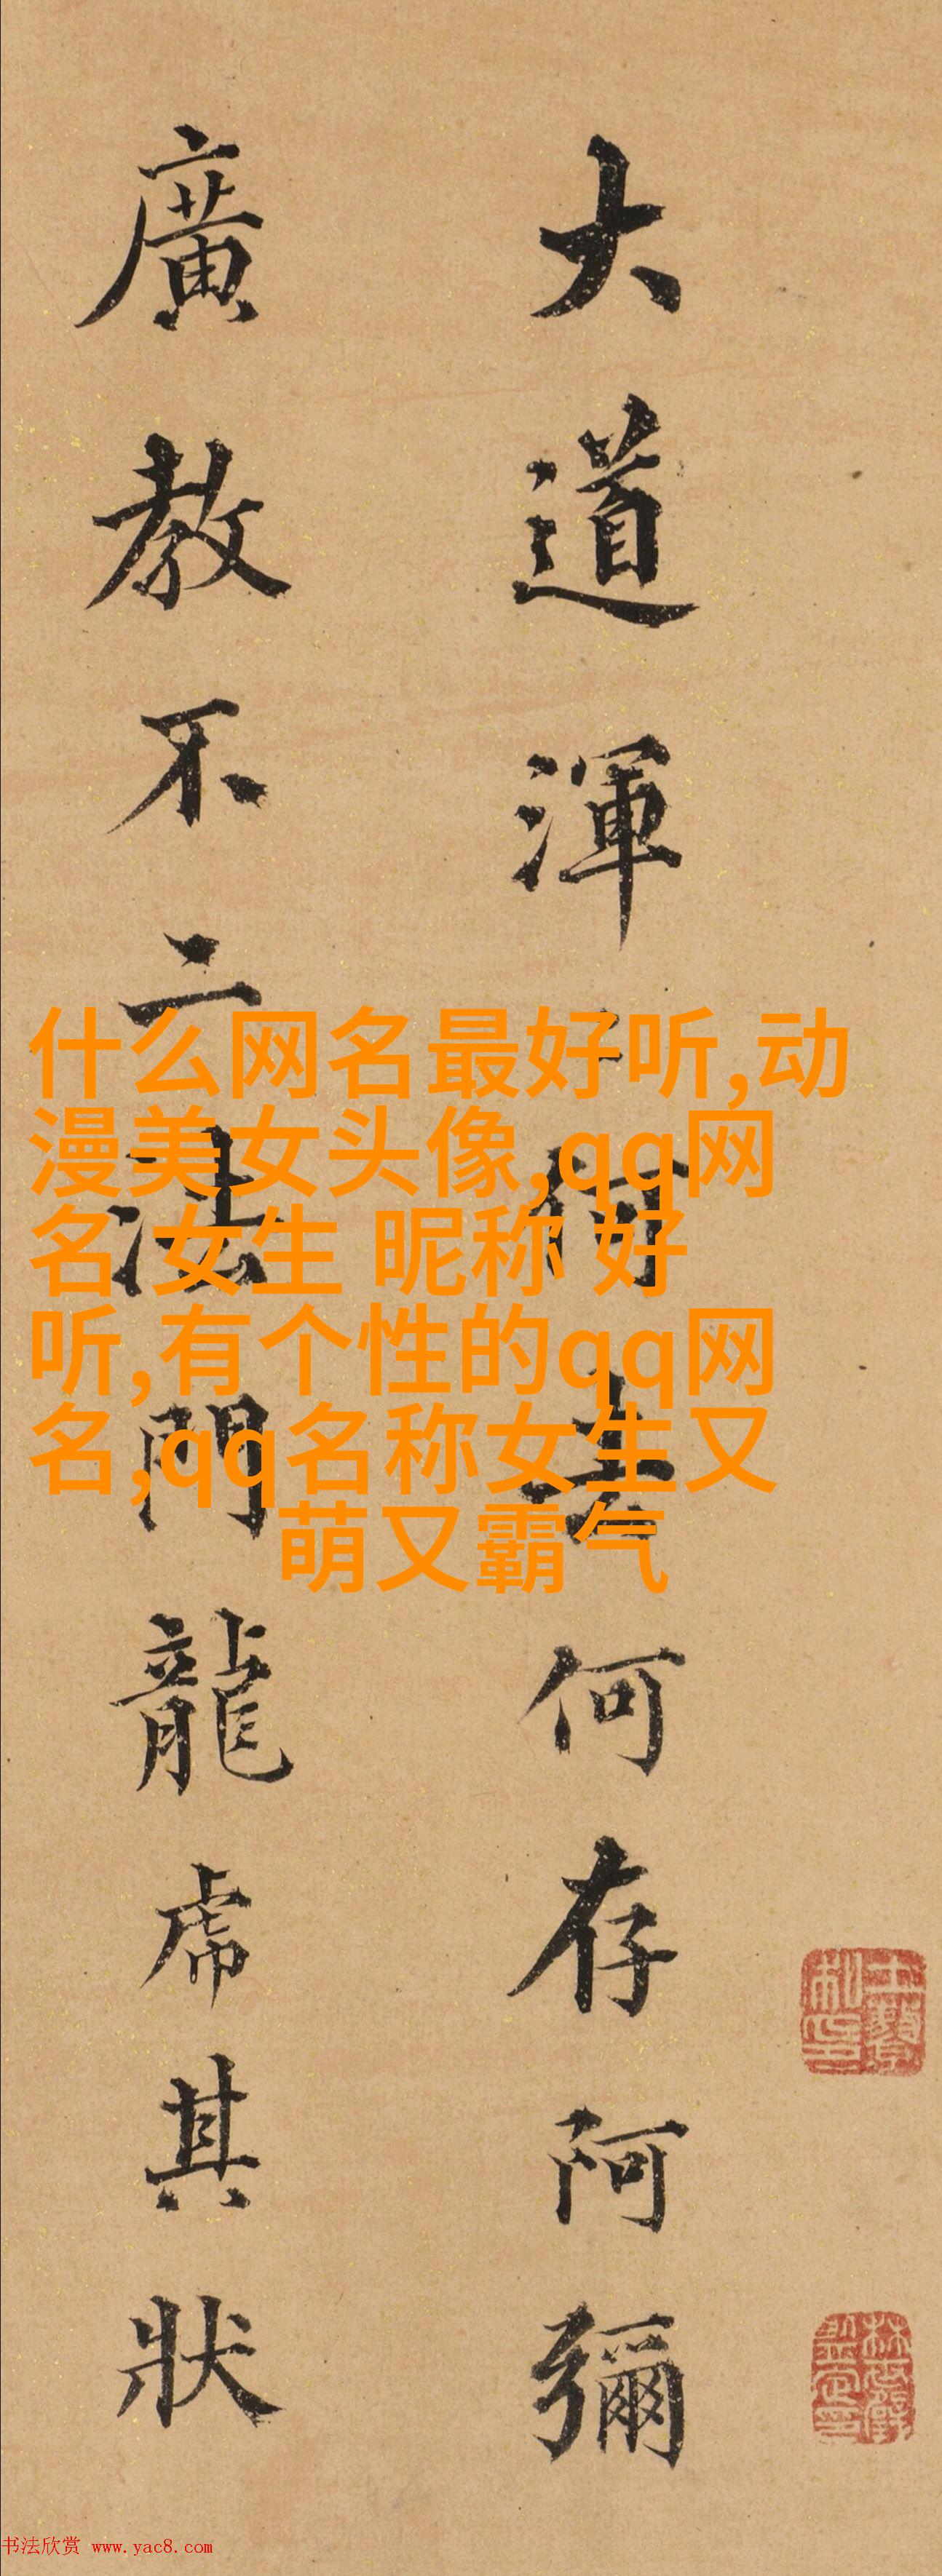 大道渾何去何存阿彌
廣教不二法門龍虎其狀
什么网名最好听,动
漫美女头像,qq网
名 女生 昵称 好
听,有个性的qq网
名,qq名称女生又
萌又霸气
书法欣赏 www.yac8.com